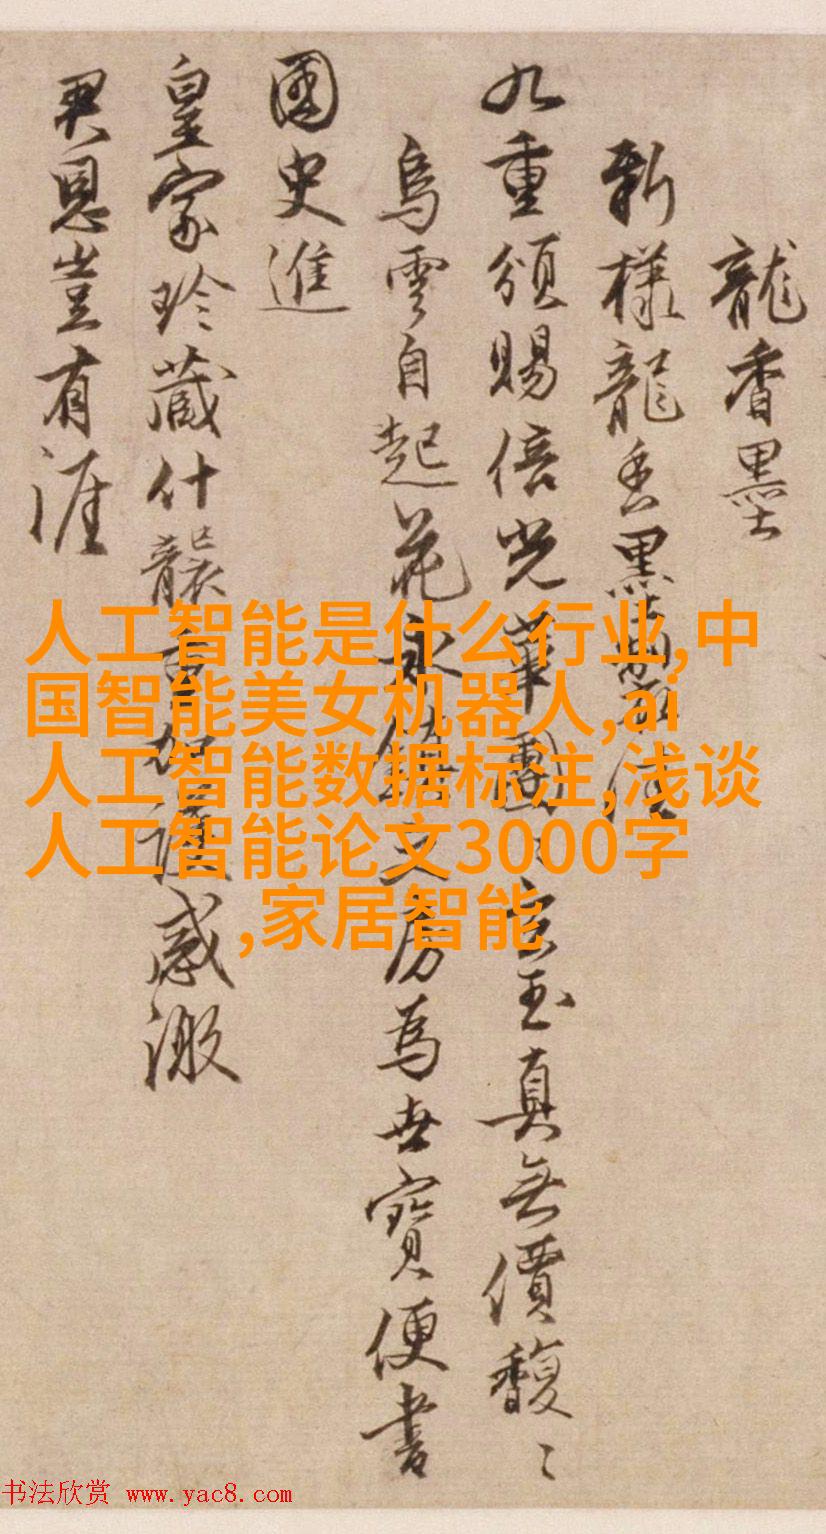 龍香墨
新樣龍香墨製法
九重頒賜倍光華團〻宗玉真無價馥〻
烏雲自起花永鎮文房為世寶便書
國史進
皇家珍藏什襲重加護感激
君恩豈有涯
人工智能是什么行业,中
国智能美女机器人,ai
人工智能数据标注,浅谈
人工智能论文3000字
,家居智能
书法欣赏 www.yac8.com